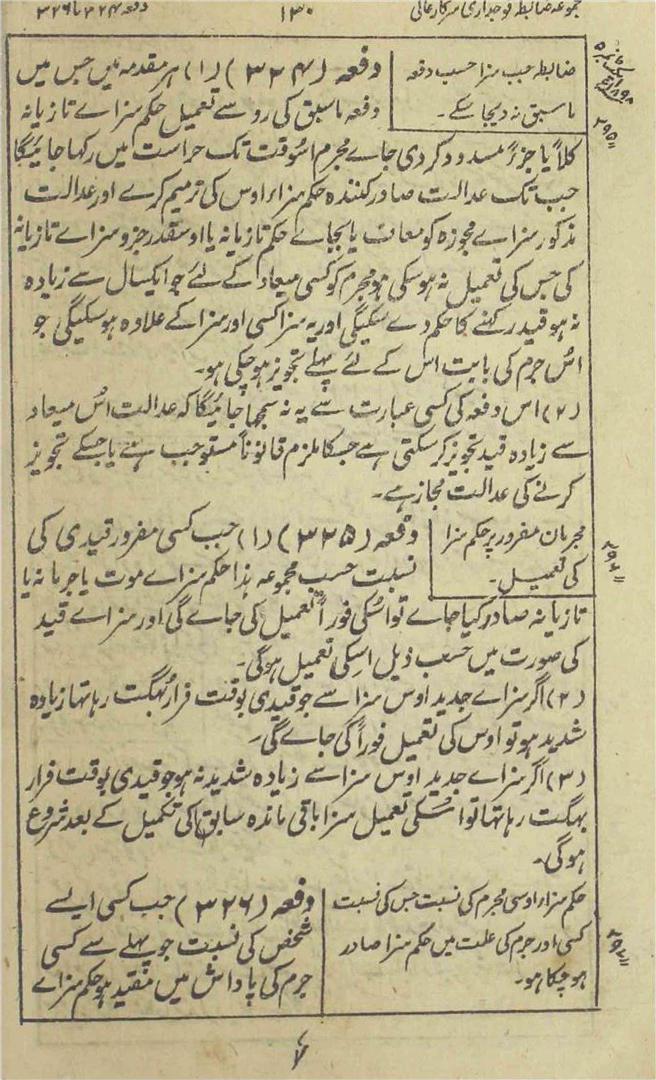 مجموعہ ضابطہ فوجداری سرکار عالی
۱۳۰
دفعہ ۳۲۴ تا ۳۲۶
ضابطہ جب سزا حسب دفعہ
ماسبق نہ دیجا سکے۔
دفعہ (۳۲۴) (۱) ہر مقدمہ میں جس میں
دفعہ ماسبق کی رو سے تعمیل حکم سزاے تازیانہ
کلاً یا جزءً مسدود کر دی جاے مجرم اسوقت تک حراست میں رکھا جائیگا
جب تک عدالت صادر کنندہ حکم سزا اوس کی ترمیم کرے اور عدالت
مذکور سزاے مجوزہ کو معاف یا بجاے حکم تازیانہ یا اوسقدر جزو سزاے تازیانہ
کی جس کی تعمیل نہ ہوسکی ہو مجرم کو کسی میعاد کے لئے جو ایکسال سے زیادہ
نہ ہو قید رکہنے کا حکم دے سکیگی اور یہ سزا کسی اور سزا کے علاوہ ہوسکیگی جو
اس جرم کی بابت اس کے لئے پہلے تجویز ہوچکی ہو۔
(۲) اس دفعہ کی کسی عبارت سے یہ نہ سمجھا جائیگا کہ عدالت اُس میعاد
سے زیادہ قید تجویز کرسکتی ہے جسکا ملزم قانوناً مستوجب ہے یا جسکے تجویز
کرنے کی عدالت مجاز ہے۔
مجرمان مفرور پر حکم سزا
کی تعمیل۔
دفعہ (۳۲۵) (۱) جب کسی مفرور قیدی کی
نسبت حسب مجموعہ ہذا حکم سزاے موت یا جرمانہ یا
تازیانہ صادر کیا جاے تو اسکی فوراً تعمیل کی جاے گی اور سزاے قید
کی صورت میں حسب ذیل اسکی تعمیل ہوگی۔
(۲) اگر سزاے جدید اوس سزا سے جو قیدی بوقت فرار بُھگت رہا تہا زیادہ
شدید ہو تو اوس کی تعمیل فوراً کی جاے گی۔
(۳) اگر سزاے جدید اوس سزا سے زیادہ شدید نہ ہو جو قیدی بوقت فرار
بہگت رہا تہا تو اسکی تعمیل سزا باقی ماندہ سابق کی تکمیل کے بعد شروع
ہوگی۔
حکم سزا اوسی مجرم کی نسبت جس کی نسبت
کسی اور جرم کی علت میں حکم سزا صادر
ہوچکا ہو۔
دفعہ (۳۲۶) جب کسی ایسے
شخص کی نسبت جو پہلے سے کسی
جرم کی پاداش میں مقید ہو حکم سزاے